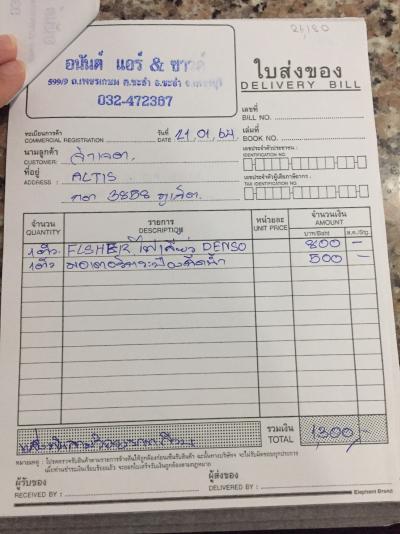 อนันต์ แอร์ & ซาวด์
599/9 ถ.เพชรเกษม ต.ชะอำ อ.ชะอำ จ.เพชรบุรี
032-472367
ใบส่งของ
DELIVERY BILL
เลขที่
BILL NO.
ทะเบียนการค้า
COMMERCIAL REGISTRATION
วันที่
DATE 21.01.64
เล่มที่
BOOK NO.
นามลูกค้า
CUSTOMER:
เลขประจำตัวประชาชน :
IDENTIFICATION NO.
ที่อยู่
ADDRESS : ALTIS
เลขประจำตัวผู้เสียภาษีอากร :
TAX IDENTIFICATION NO.
3858 ภูเก็ต
จำนวน รายการ หน่วยละ จำนวนเงิน
QUANTITY DESCRIPTION UNIT PRICE AMOUNT
บาท/Baht ส.ต./Stg.
1 ตัว FLSHER ไฟเลี้ยว DENSO 800 -
1 ตัว มอเตอร์ กระป๋องฉีดน้ำ 500 -
รวมเงิน
TOTAL 1300.-
หมายเหตุ : โปรดตรวจรับสินค้าตามรายการข้างต้นให้ถูกต้องก่อนเซ็นรับสินค้า ฉะนั้นทางบริษัทฯ จะไม่รับผิดชอบทุกประการ
เมื่อท่านชำระเงินเรียบร้อยแล้ว จะออกใบเสร็จรับเงินถูกต้องตามกฎหมาย
ผู้รับของ
RECEIVED BY :
ผู้ส่งของ
DELIVERED BY :
Elephant Brand